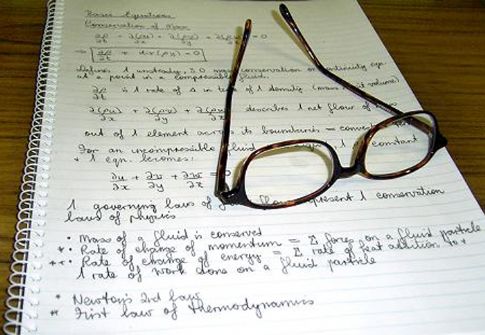 Basic Equations
Conservation of Mass
∂ρ/∂t + ∂(ρu)/∂x + ∂(ρv)/∂y + ∂(ρw)/∂z = 0
⇒ ∂ρ/∂t + div(ρu) = 0
Defines 1 unsteady, 3D mass conservation or continuity eqn.
at a point in a compressible fluid.
∂ρ/∂t is 1 rate of Δ in t of 1 density (mass volume)
∂(ρu)/∂x + ∂(ρv)/∂y + ∂(ρw) describes 1 net flow of
out of 1 element across its boundaries =
For an incompressible fluid 1 constant
+ 1 eqn. becomes:
∂u/∂x + ∂v/∂y + ∂w = 0
1 governing laws of flow represent 1 conservation
laws of physics
* Mass of a fluid is conserved
** Rate of change of momentum = Σ forces on a fluid particle
*** Rate of change of energy = Σ rate of heat addition to +
1 rate of work done on a fluid particle
* Newton's 2nd law
** First law of thermodynamics